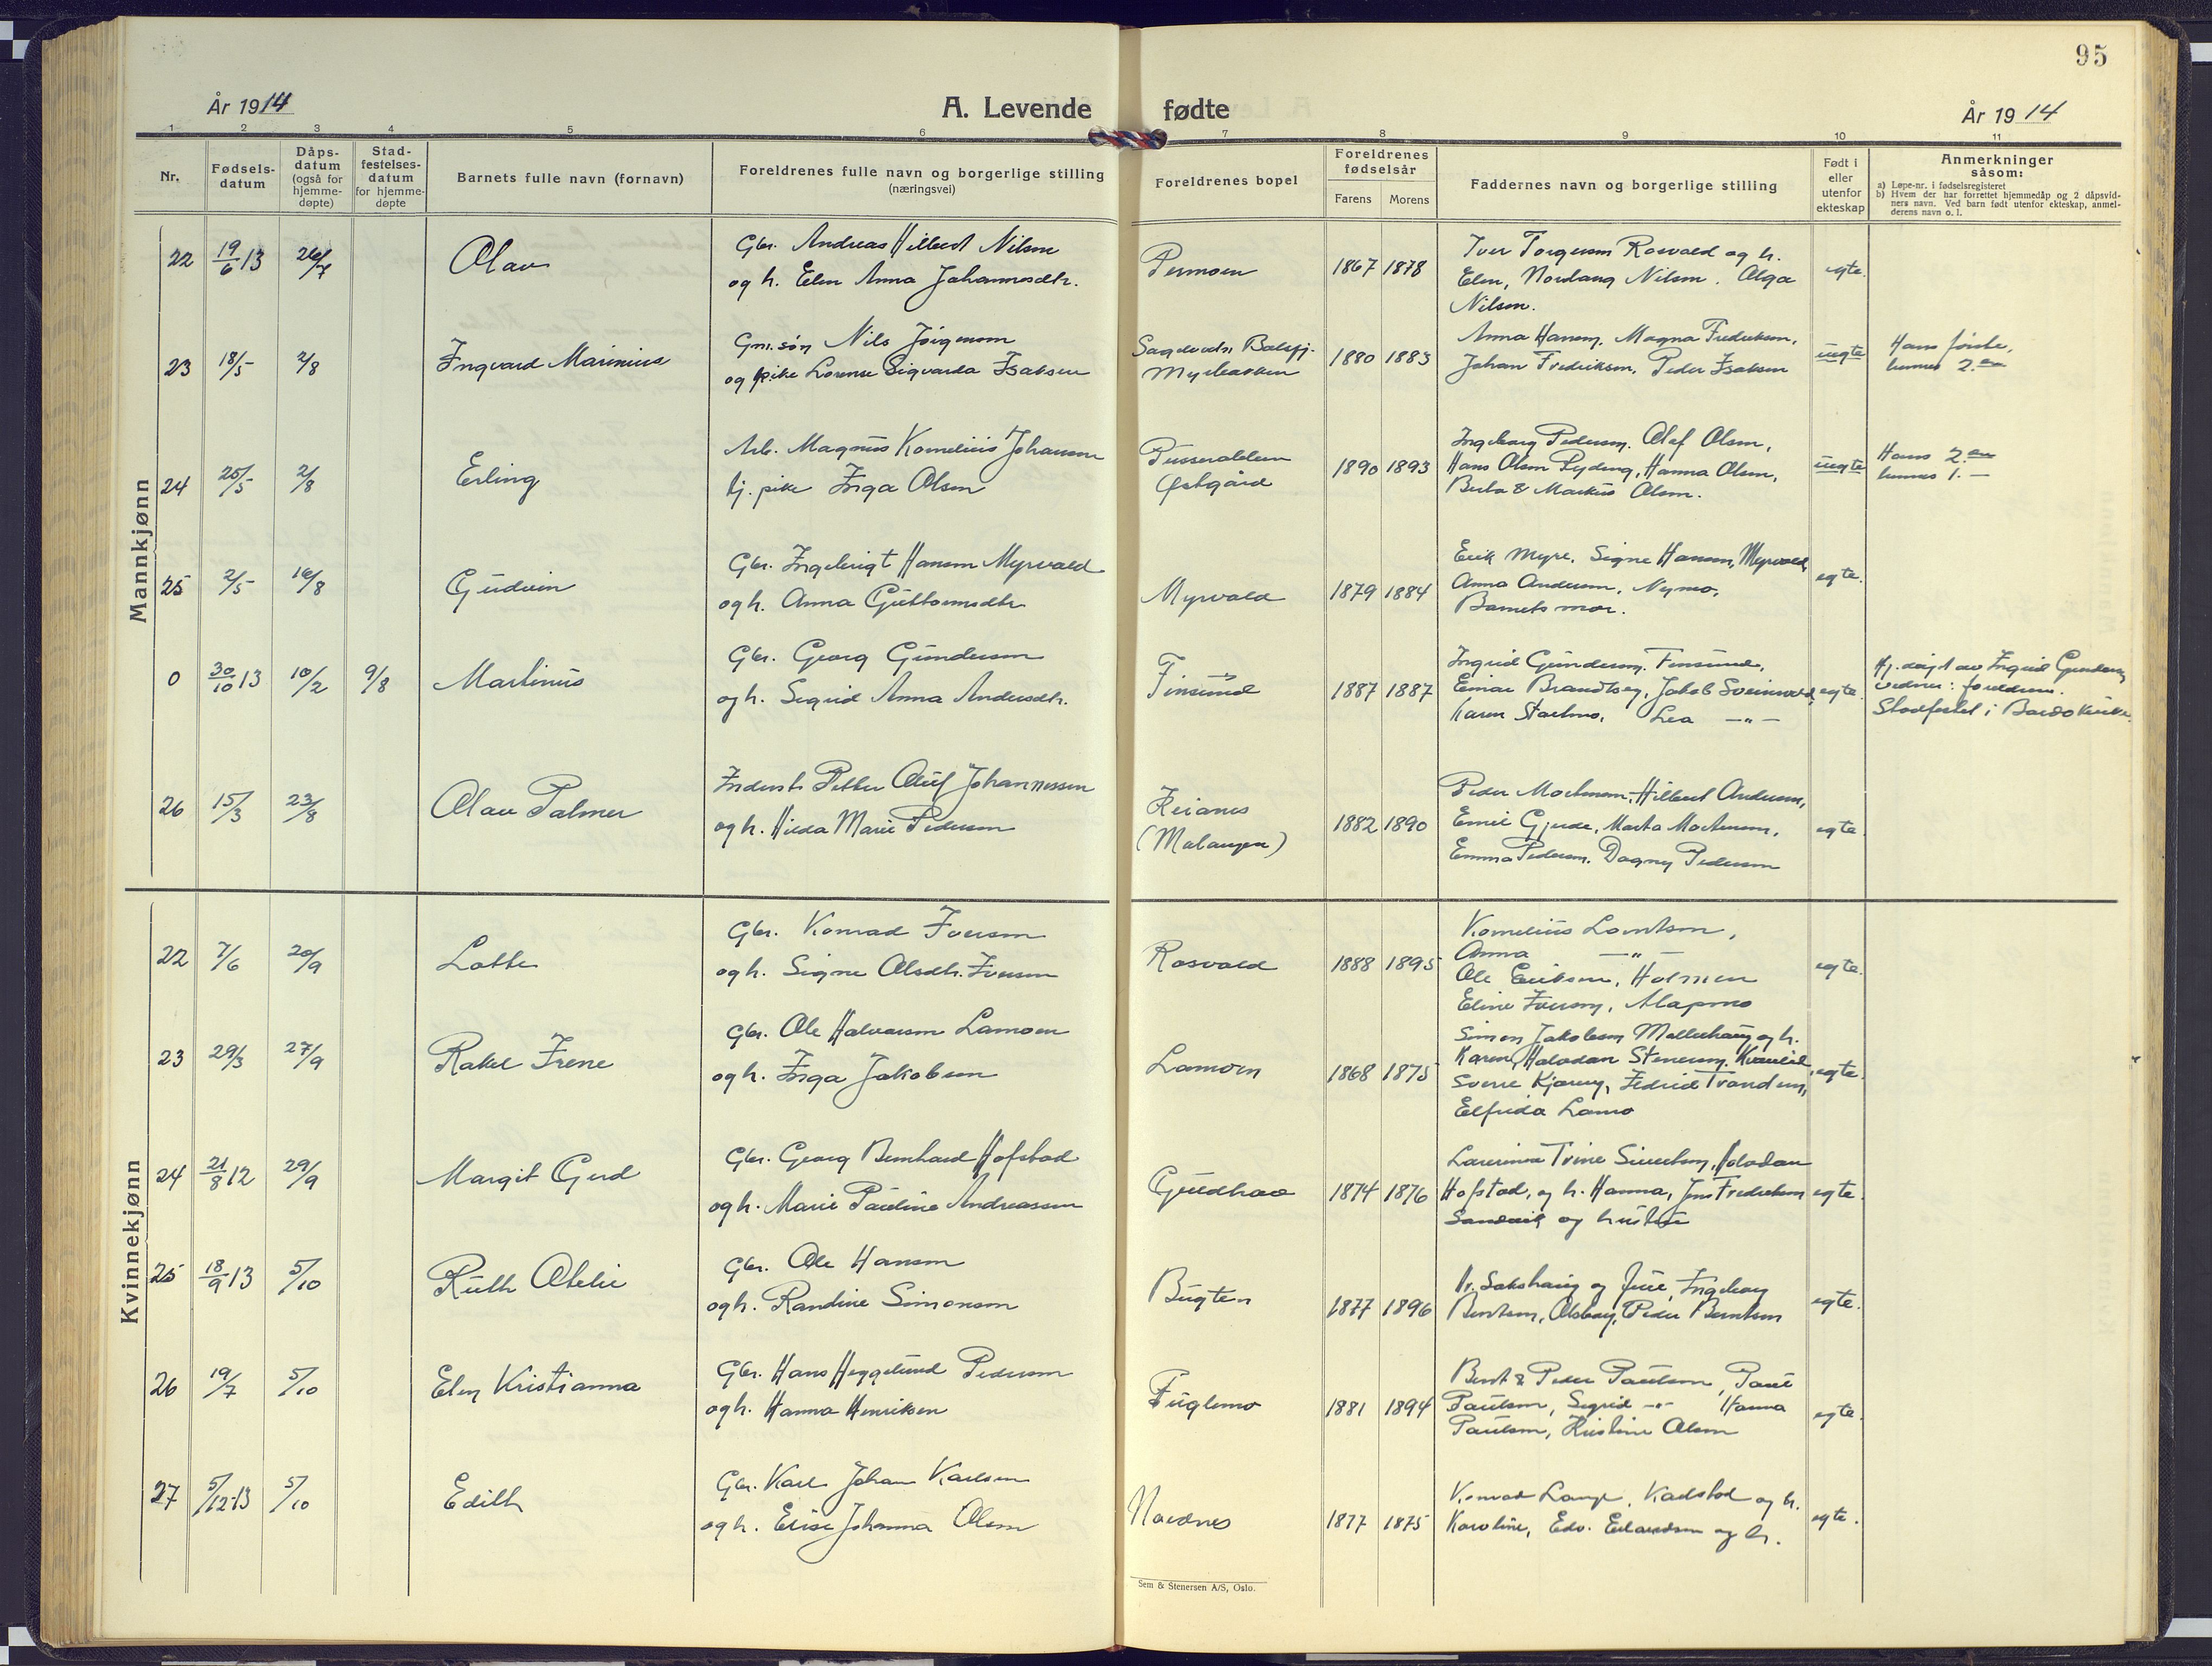 95
År 1914
A. Levende fødte
År 1914
1 2 3 4 5 6 7 8 9 10 11
Nr.
Fødsels-
datum
Dåps-
datum
(også for
hjemme-
døpte)
Stad-
festelses-
datum
for hjemme-
døpte
Barnets fulle navn (fornavn)
Foreldrenes fulle navn og borgerlige stilling
(næringsvei)
Foreldrenes bopel
Foreldrenes
fødselsår
Farens Morens
Faddernes navn og borgerlige stilling
Født i
eller
utenfor
ekteskap
Anmerkninger
såsom:
a) Løpe-nr. i fødselsregisteret
b) Hvem der har forrettet hjemmedåp og 2 dåpsvid-
ners navn. Ved barn født utenfor ekteskap, anmel-
derens navn o. l.
Mannkjønn
22 19/6 13 26/7 Olav
Gbr. Andreas Hilbert Nilsen
og h. Elen Anna Johannesdtr.
Permoen 1867 1878
Iver Torgersen Rosvold og h.
Elen, Nordang Nilsen. Olga
Nilsen.
egte.
23 18/5 2/8 Ingvard Marinius
Gm. søn Nils Jörgensen
og pike Lorense Sigvarda Isaksen
Balsfj.
1880 1883
Anna Hansen, Magna Fredriksen,
Johan Fredriksen, Peder Isaksen
uegte
Hans første,
hennes 2. en
24 25/5 2/8 Erling
Arb. Magnus Kornelius Johansen
tj. pike Inga Olsen
Østgård
1890 1893
Ingeborg Pedersen. Olaf Olsen,
Hans Olsen Rydeng, Hanna Olsen,
Berta & Markus Olsen.
uegte
Hans 2. en
hennes 1. —
25 2/5 16/8 Gudvin
Gbr. Ingebrigt Hansen Myrvold
og h. Anna Guttormsdtr
Myrvold 1879 1884
Erik Myre, Signe Hansen, Myrvold,
Anna Andersen, Nymo,
Barnets mor.
egte.
0 30/10 13 10/2 9/8 Martinus
Gbr. Georg Gundersen
og h. Sigrid Anna Andersdtr.
Finsund 1887 1887
Ingrid Gundersen. Finsund,
Einar Brandtseg, Jakob Sveinvold,
Karen Stortmo, Lea —"—
egte.
Hj. døpt av Ingrid Gundersen
vidner: foreldrene.
Stadfestet i Bardo kirke.
26 15/3 23/8 Olav Palmer
Inderst Petter Oluf Johannessen
og h. Hilda Marie Pedersen
Keianes
(Malangen)
1882 1890
Peder Mortensen, Hilbert Andersen,
Emil Gjerde, Marta Mortensen,
Emma Pedersen, Dagny Pedersen
egte.
Kvinnekjønn
22 7/6 20/9 Lotte
Gbr. Konrad Iversen
og h. Signe Olsdtr. Iversen
Rosvold 1888 1895
Kornelius Lorntsen,
Anna —"—
Ole Eriksen, Holmen
Eline Iversen, Alapmo
egte.
23 29/3 27/9 Rakel Irene
Gbr. Ole Halvorsen Lamoen
og h. Inga Jakobsen
Lamoen 1868 1875
Simon Jakobsen Mellerhaug og h.
Karen, Halvdan Stenersen, Kvernli,
Sverre Kjæreng, Fredrid Trondsen,
Elfrida Lamo
egte.
24 21/8 12 29/9 Margit Gerd
Gbr. Georg Bernhard Hofstad
og h. Marie Pauline Andreassen
Guldhav 1874 1876
Trine Sivertsen, Halvdan
Hofstad, og h. Hanna, Jens Fredriksen
Sandvik og hustru
egte.
25 18/9 13 5/10 Ruth Otelie
Gbr. Ole Hansen
og h. Randine Simonsen
Bugten 1877 1896
Sakshaug og frue, Ingeborg
Berntsen, Olsborg, Peder Berntsen
egte.
26 19/7 5/10 Elen Kristianna
Gbr. Hans Heggelund Pedersen
og h. Hanna Henriksen
Fuglemo 1881 1894
Bernt & Peder Paulsen, Paul
Paulsen, Sigrid —"— Hanna
Paulsen, Kristine Olsen
egte.
27 5/12-13 5/10 Edith
Gbr. Karl Johan Karlsen
og h. Elise Johanna Olsen
Nordnes 1877 1875
Konrad Lange, Karlstad og h.
Karoline, Edv. Erlandsen og h.
egte.
Sem & Stenersen A/S, Oslo.